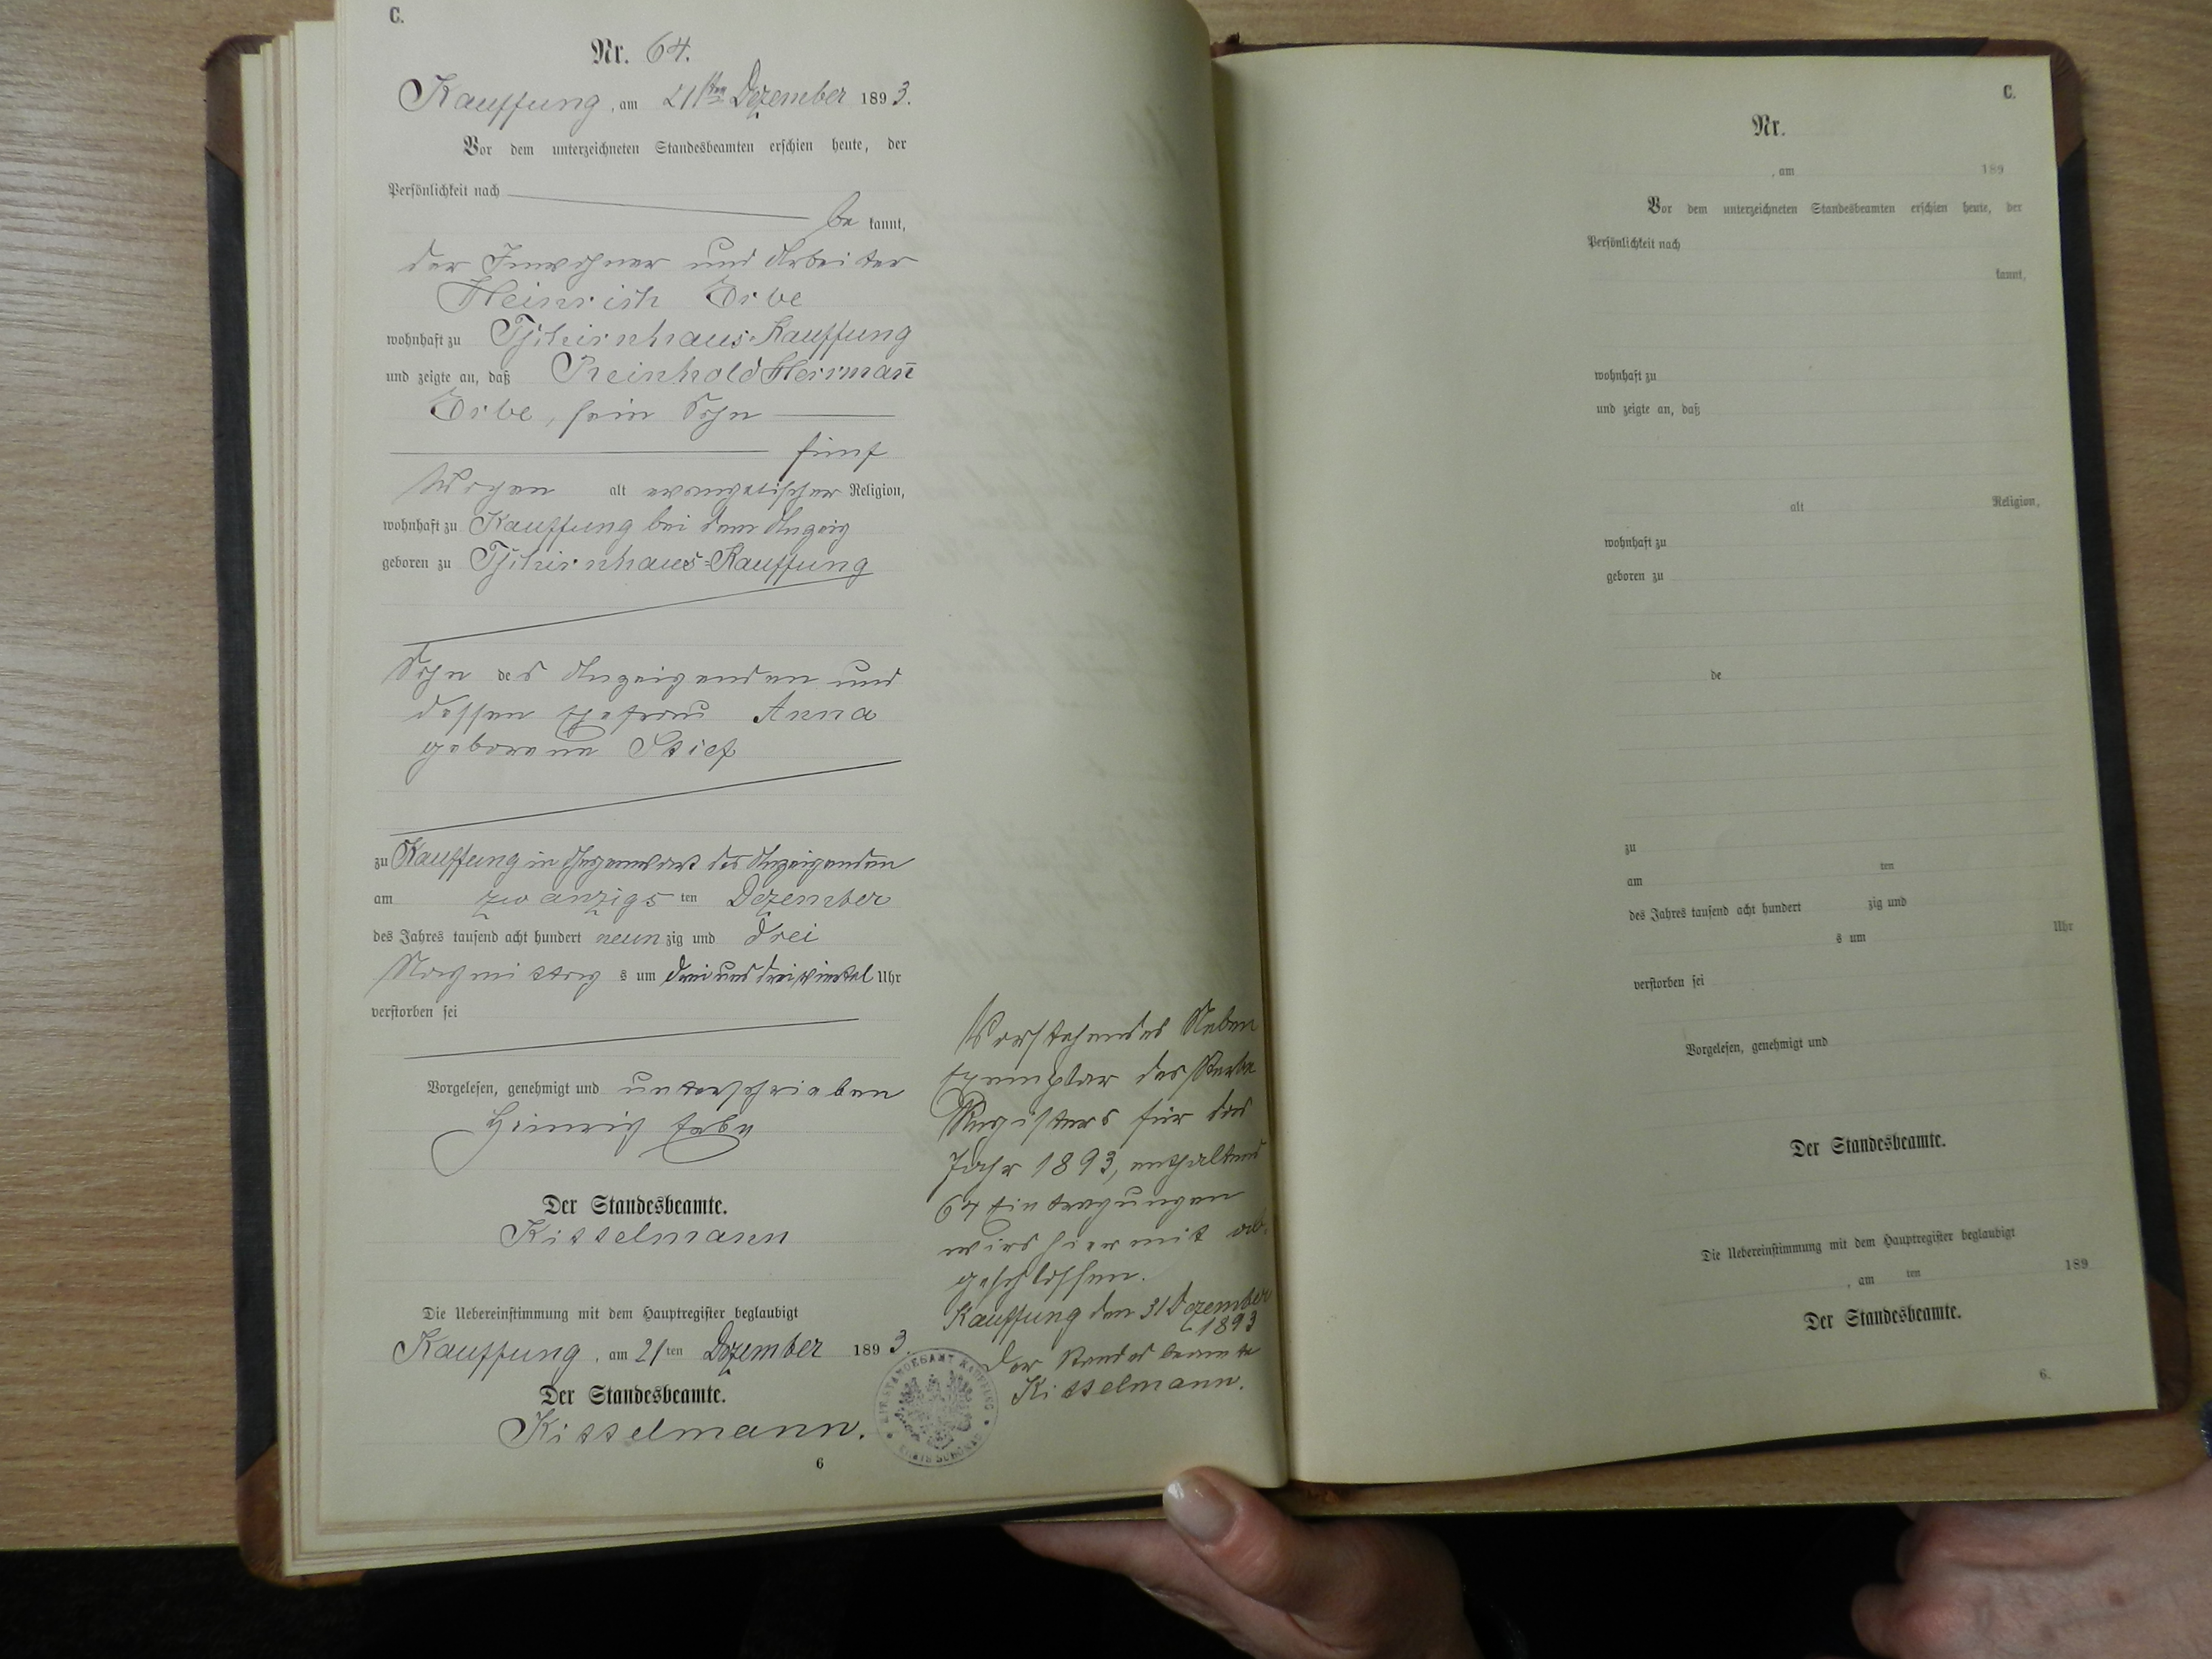 C.
Nr. 64.
Kauffung, am 21ten Dezember 1893.
Vor dem unterzeichneten Standesbeamten erschien heute, der
Persönlichkeit nach
be kannt,
der Inwohner und Arbeiter
Heinrich Erbe
wohnhaft zu Tschirnhaus-Kauffung
und zeigte an, daß Reinhold Herrman̄
Erbe, sein Sohn
fünf
Wochen alt evangelischer Religion,
wohnhaft zu Kauffung bei dem Anzeig
geboren zu Tschirnhaus-Kauffung
Sohn des Anzeigenden und
dessen Ehefrau Anna
geborene Stief
zu Kauffung in Gegenwart des Anzeigenden
am zwanzigsten Dezember
des Jahres tausend acht hundert neunzig und drei
Nachmittags um drei und dreiviertel Uhr
verstorben sei
Vorgelesen, genehmigt und unterschrieben
Heinrich Erbe
Der Standesbeamte.
Kittelmann
Die Uebereinstimmung mit dem Hauptregister beglaubigt
Kauffung, am 21ten Dezember 1893.
Der Standesbeamte.
Kittelmann.
6
Vorstehendes Neben
Exemplar des Sterbe
Registers für das
Jahr 1893, enthaltend
64 Eintragungen
wird hiermit ab-
geschlossen.
Kauffung den 31 Dezember
1893
Der Standesbeamte
Kittelmann.
STANDESAMT KAUFFUNG
KREIS SCHÖNAU
C.
Nr.
, am 189
Vor dem unterzeichneten Standesbeamten erschien heute, der
Persönlichkeit nach
kannt,
wohnhaft zu
und zeigte an, daß
alt Religion,
wohnhaft zu
geboren zu
de
zu
am ten
des Jahres tausend acht hundert zig und
s um Uhr
verstorben sei
Vorgelesen, genehmigt und
Der Standesbeamte.
Die Uebereinstimmung mit dem Hauptregister beglaubigt
, am ten 189
Der Standesbeamte.
6.